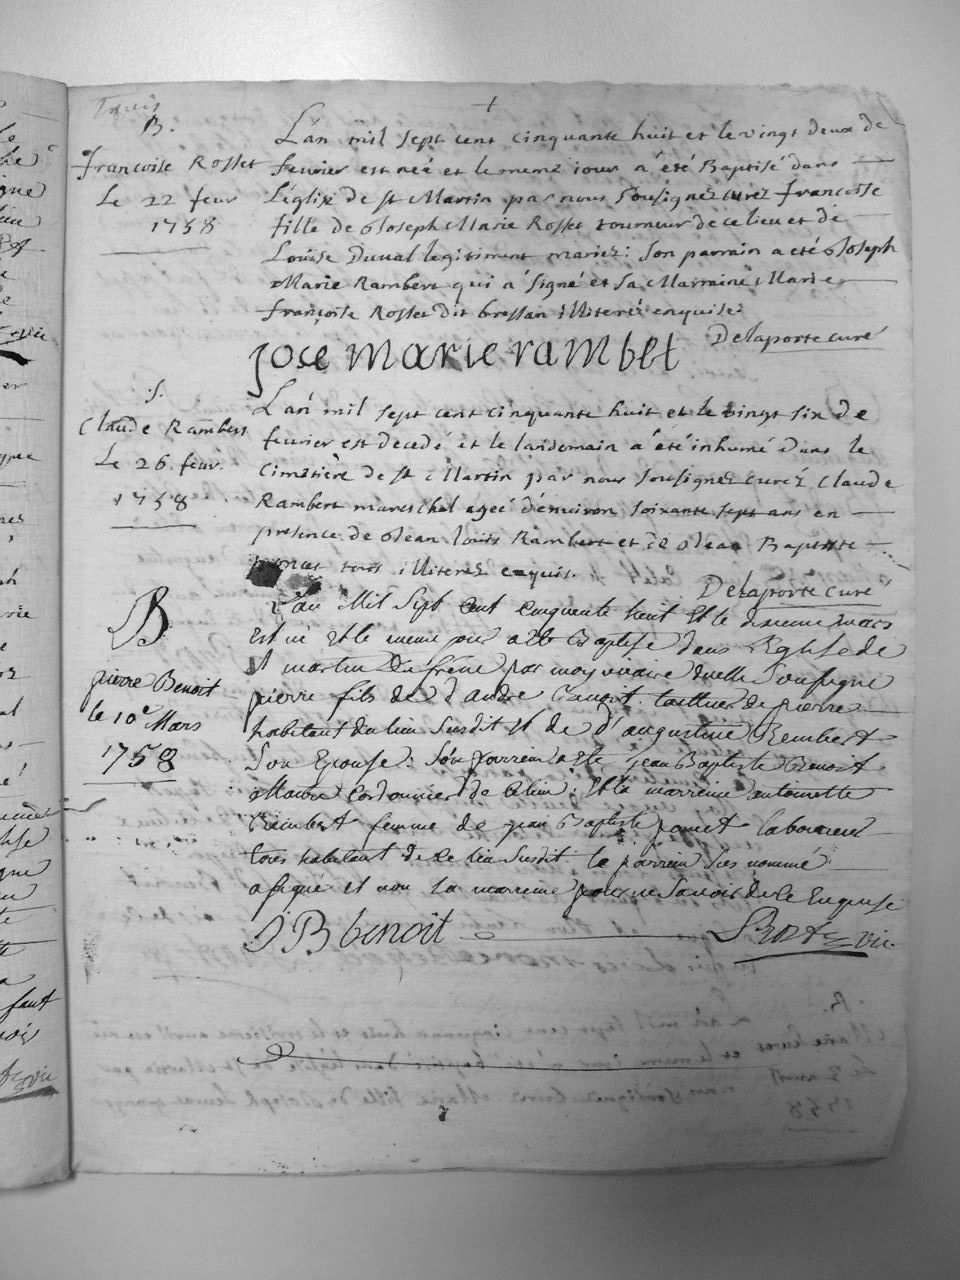 B.
françoise Rosset
Le 22 feur
1758
L'an mil sept cent cinquante huit et le vingt deux de
feurier est neé et le meme iour a été Baptisé dans
L'églisé de st Martin par nous Sousigné curez françoise
fille de Joseph Marie Rosset tourneur de ce lieu et de
Louise Duual legitiment mariez: Son parrain a eté Joseph
Marie Rambert qui a signé et sa Marraine Marie
françoise Rosset dit bressan illiterés enquise
Delaporte curé
jose marie rambet
S.
Claude Rambert
Le 26 feur.
1758
L'an mil sept cent cinquante huit et le vingt six de
feurier est decedé et le landemain a été inhumé dans le
Cimétière de st Martin par nous sousignez curéz Claude
Rambert mareschal ageé d'enuiron soixante sept ans en
presence de Jean louis Rambert et de Jean Baptiste
tous illiterez enquis.
Delaporte curé
B
pierre Benoit
le 10e Mars
1758
L'an Mil Sept Cent Cinquente huit et le dixieme mars
est né et le meme jour a ete Baptise dans l'Eglise de
St martin Du frêne par moy vicaire d'icelle Soussigné
pierre fils de d'andre Benoit tailleur de pierre
habitant du lieu Susdit et de d'augustine Rembert
Son Epouse: Son parrein a ete jean Baptiste Benoit
Maitre Cordonnier de Ce lieu: Et la marreine antoinette
Reimbert femme de jean Baptiste pomet laboureur
tous habitant de Ce lieu Susdit le parrein Sus nommé
a signé et non la marreine pour ne Savoir de Ce Enquise
J B benoit
vic.